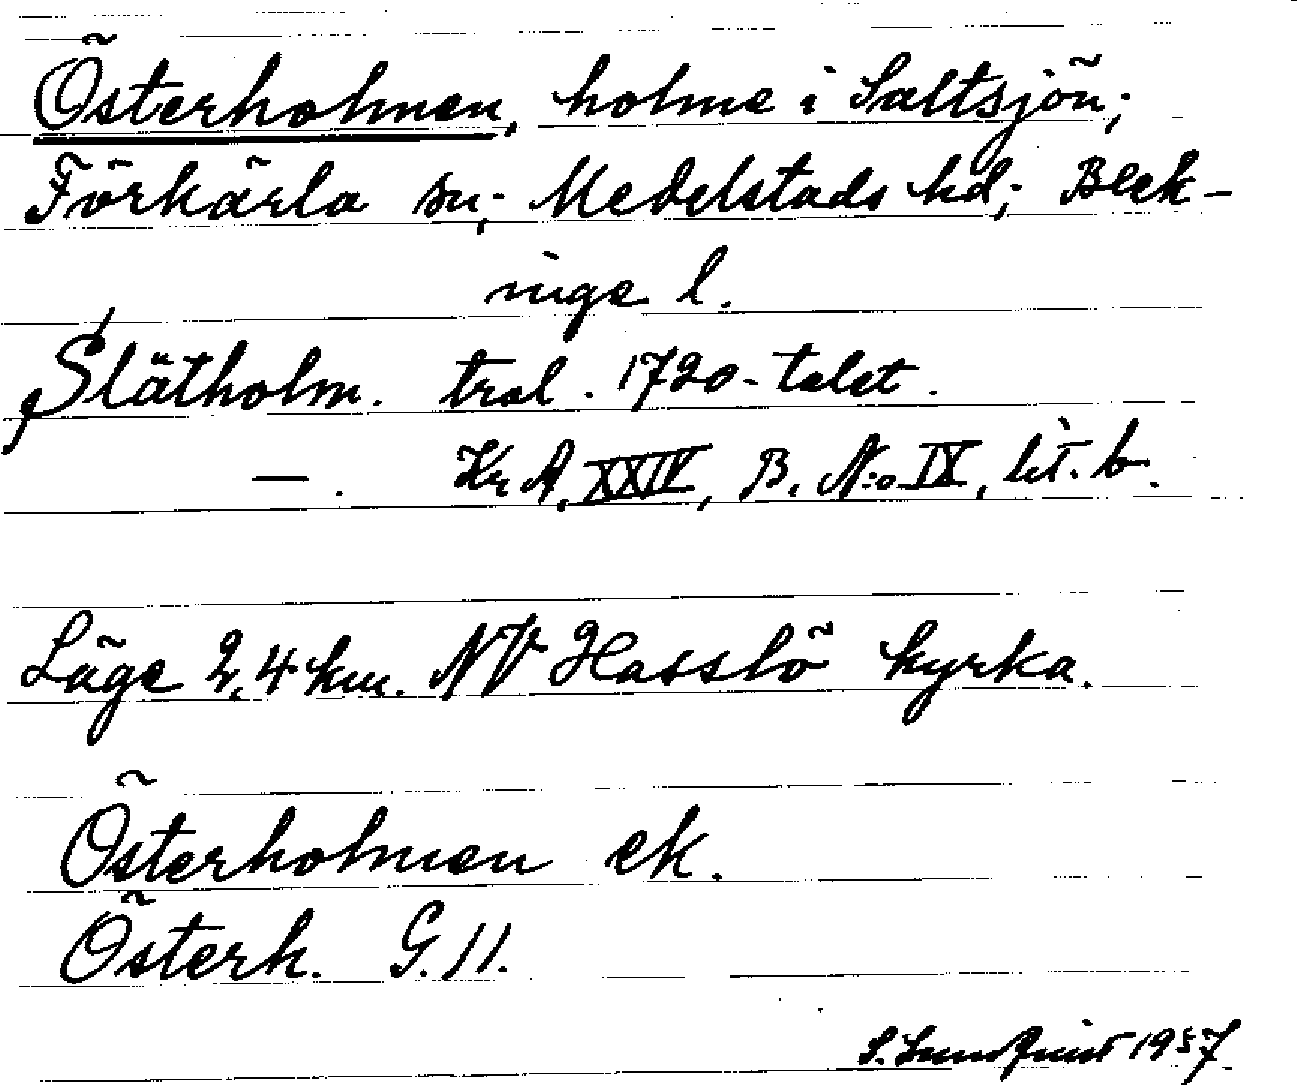 Österholmen, holme i Saltsjön;
Förkärla sn; Medelstads hd; Blek-
inge l.
Slätholm. tral. 1720-talet.
—. Kr A, XXIV, B. N:o IX, lit. b.
Läge 2,4 km. NV Hasslö kyrka.
Österholmen ek.
Österh. G. 11.
S. Lundquist 1957